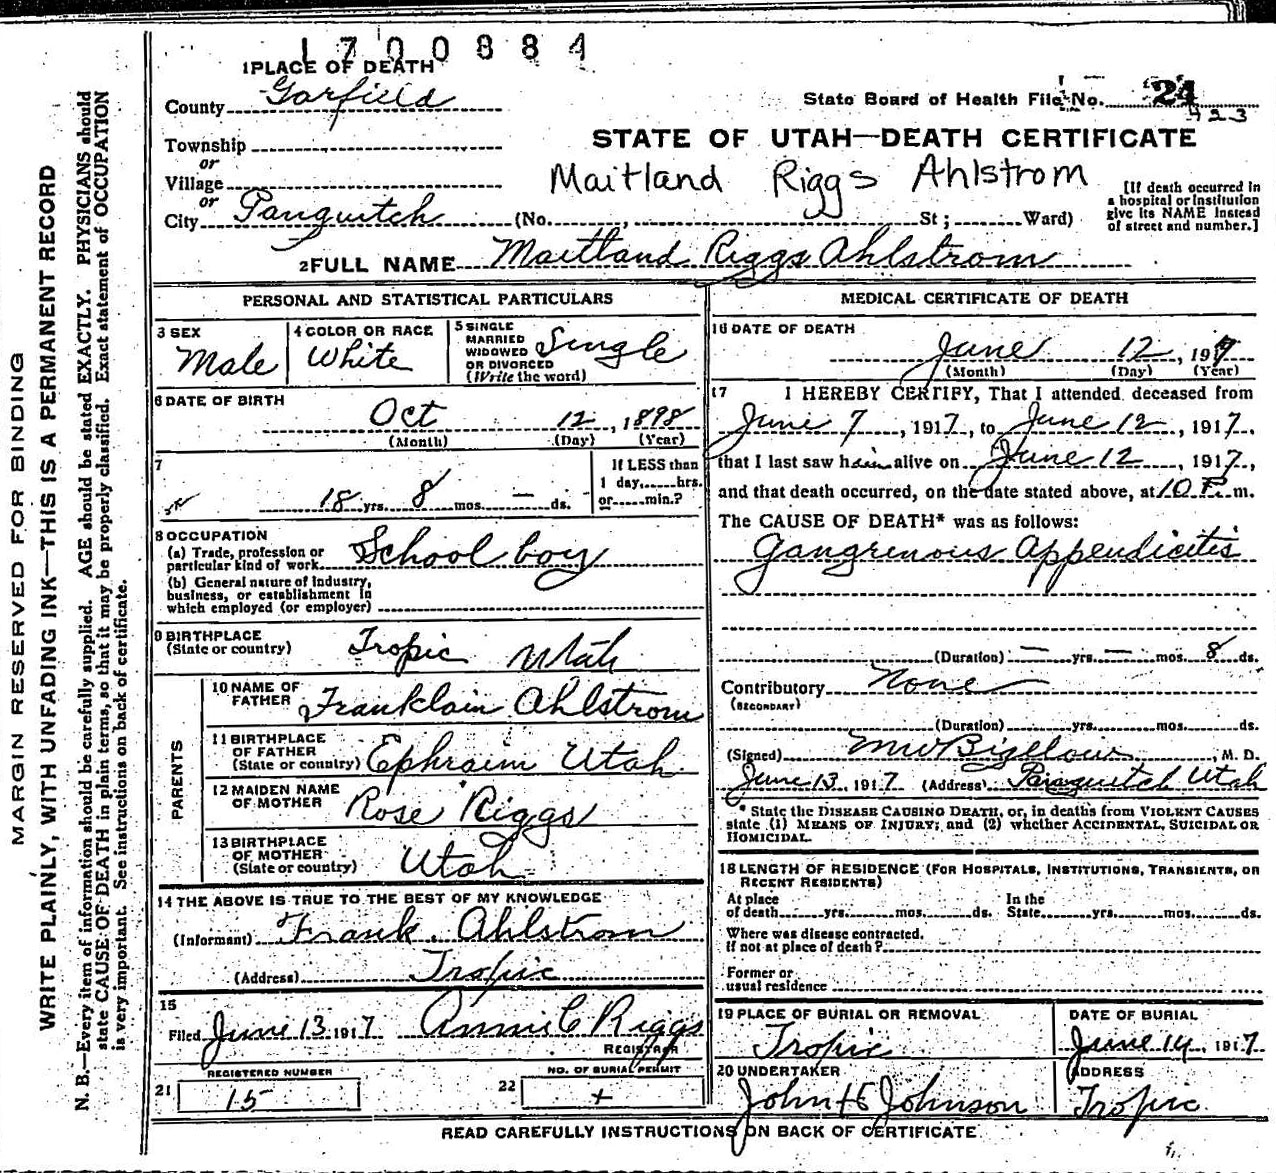 1700884
1 PLACE OF DEATH
County Garfield
State Board of Health File No. 24
423
Township
or
Village
or
City Panguitch (No. , St ; Ward)
STATE OF UTAH—DEATH CERTIFICATE
Maitland Riggs Ahlstrom
[If death occurred in
a hospital or institution
give its NAME instead
of street and number.]
2 FULL NAME Maitland Riggs Ahlstrom
PERSONAL AND STATISTICAL PARTICULARS
3 SEX
Male
4 COLOR OR RACE
White
5 SINGLE
MARRIED
WIDOWED
OR DIVORCED
(Write the word)
Single
6 DATE OF BIRTH
Oct 12, 1898
(Month) (Day) (Year)
7
18 yrs. 8 mos. — ds.
If LESS than
1 day, hrs.
or min.?
8 OCCUPATION
(a) Trade, profession or
particular kind of work School boy
(b) General nature of Industry,
business, or establishment in
which employed (or employer)
9 BIRTHPLACE
(State or country) Tropic Utah
PARENTS
10 NAME OF
FATHER Franklain Ahlstrom
11 BIRTHPLACE
OF FATHER
(State or country) Ephraim Utah
12 MAIDEN NAME
OF MOTHER Rose Riggs
13 BIRTHPLACE
OF MOTHER
(State or country) Utah
14 THE ABOVE IS TRUE TO THE BEST OF MY KNOWLEDGE
(Informant) Frank Ahlstrom
(Address) Tropic
15
Filed June 13 1917 Annie C Riggs
REGISTRAR
REGISTERED NUMBER
21 15
NO. OF BURIAL PERMIT
22 +
MEDICAL CERTIFICATE OF DEATH
16 DATE OF DEATH
June 12, 1917
(Month) (Day) (Year)
17 I HEREBY CERTIFY, That I attended deceased from
June 7, 1917, to June 12, 1917,
that I last saw him alive on June 12, 1917,
and that death occurred, on the date stated above, at 10 P. m.
The CAUSE OF DEATH* was as follows:
Gangrenous Appendicitis
(Duration) — yrs. — mos. 8 ds.
Contributory None
(SECONDARY)
(Duration) yrs. mos. ds.
(Signed) M W Bigelow, M. D.
June 13, 1917 (Address) Panguitch Utah
* State the DISEASE CAUSING DEATH, or, in deaths from VIOLENT CAUSES
state (1) MEANS OF INJURY; and (2) whether ACCIDENTAL, SUICIDAL OR
HOMICIDAL.
18 LENGTH OF RESIDENCE (FOR HOSPITALS, INSTITUTIONS, TRANSIENTS, OR
RECENT RESIDENTS)
At place
of death yrs. mos. ds.
In the
State yrs. mos. ds.
Where was disease contracted.
If not at place of death?
Former or
usual residence
19 PLACE OF BURIAL OR REMOVAL
Tropic
DATE OF BURIAL
June 14, 1917
20 UNDERTAKER
John H Johnson
ADDRESS
Tropic
READ CAREFULLY INSTRUCTIONS ON BACK OF CERTIFICATE
MARGIN RESERVED FOR BINDING
WRITE PLAINLY, WITH UNFADING INK—THIS IS A PERMANENT RECORD
N. B.—Every item of information should be carefully supplied. AGE should be stated EXACTLY. PHYSICIANS should
state CAUSE OF DEATH in plain terms, so that it may be properly classified. Exact statement of OCCUPATION
is very important. See instructions on back of certificate.